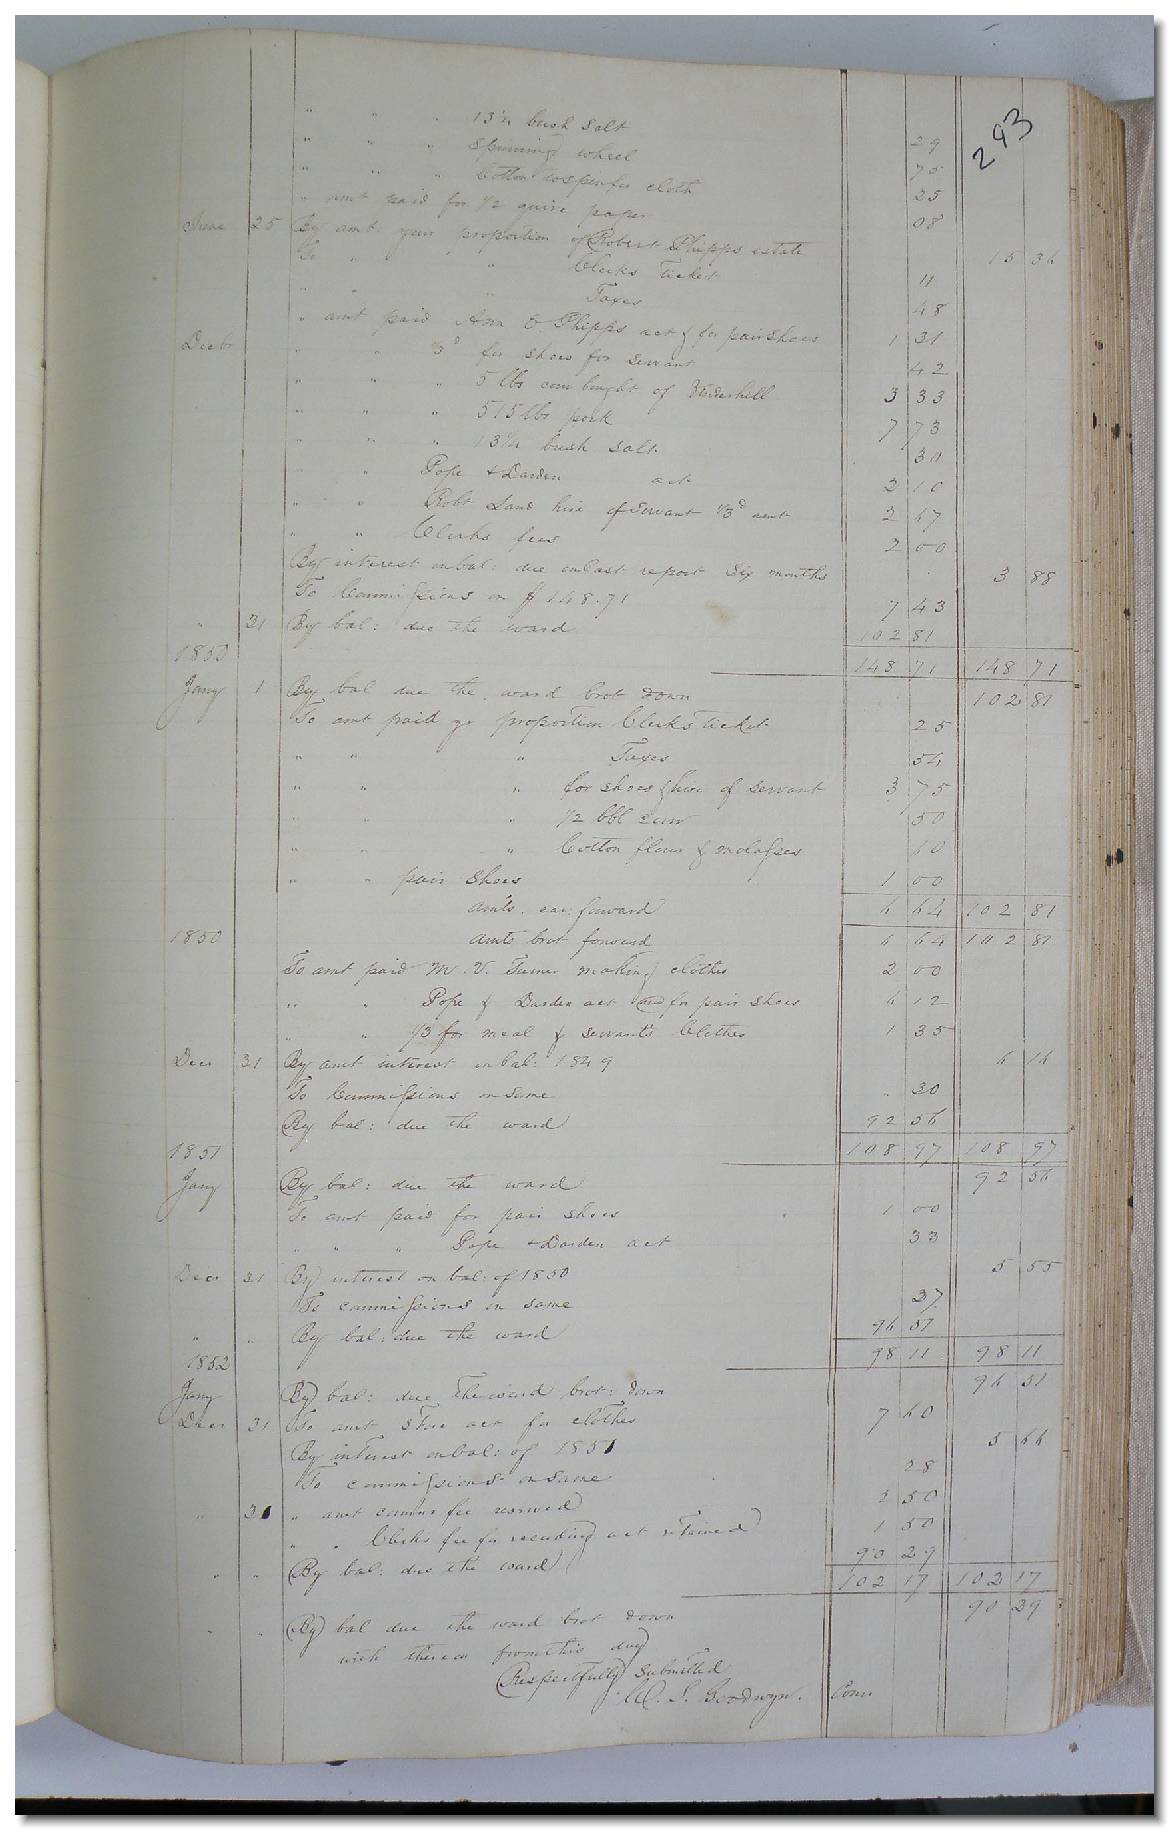 293
" " " 13½ bush salt 29
" " " Spinning wheel 75
" " " Cotton cloth 25
" amt paid for 1/2 quire paper 08
June 25 By amt your proportion of Robert Phipps estate 15 36
To " " Clerks Ticket 11
" " " Taxes 48
" amt paid Ann E Phipps act & for pair shoes 1 31
Decbr " " ⅓d for shoes for servant 42
" " " 5 lbs bought of Underhill 3 33
" " " 515 lbs pork 7 73
" " " 13½ bush salt 30
" " Pope & Darden act 2 10
" " Robt Land hire of servant ⅓d amt 2 67
" " Clerks fees 2 00
By interest on bal: due on last report Six months 3 88
To Commissions on $148.71 7 43
" 31 By bal: due the ward 102 81
1850 148 71 148 71
Jany 1 By bal due the ward brot down 102 81
To amt paid yr proportion Clerks ticket 25
" " " Taxes 54
" " " for shoes & hire of servant 3 75
" " " 1/2 bbl corn 50
" " " Cotton flour & molasses 60
" " pair Shoes 1 00
amts. car: forward 6 64 102 81
1850 amts brot forward 6 64 102 81
To amt paid M. V. Turner making clothes 2 00
" " Pope & Darden act and for pair shoes 6 12
" " 1/3 for meal & servants Clothes 1 35
Decr 31 By amt interest on bal: 1849 6 16
To Commissions on same " 30
By bal: due the ward 92 56
1851 108 97 108 97
Jany By bal: due the ward 92 56
To amt paid for pair shoes 1 00
" " " Pope & Darden act 33
Decr 31 By interest on bal: of 1850 5 55
To commissions on same 27
" " By bal: due the ward 96 51
1852 98 11 98 11
Jany By bal: due the ward brot: down 96 51
Decr 31 To amt Store act for clothes 7 60
By interest on bal: of 1851 5 66
To commissions on same 28
" 31 " amt commr fee 2 50
" " Clerks fee for recording act retained 1 50
" " By bal: due the ward 90 29
102 17 102 17
" " By bal due the ward brot down 90 29
with thereon from this day
Respectfully submitted
W. S. Goodwyn. Comr